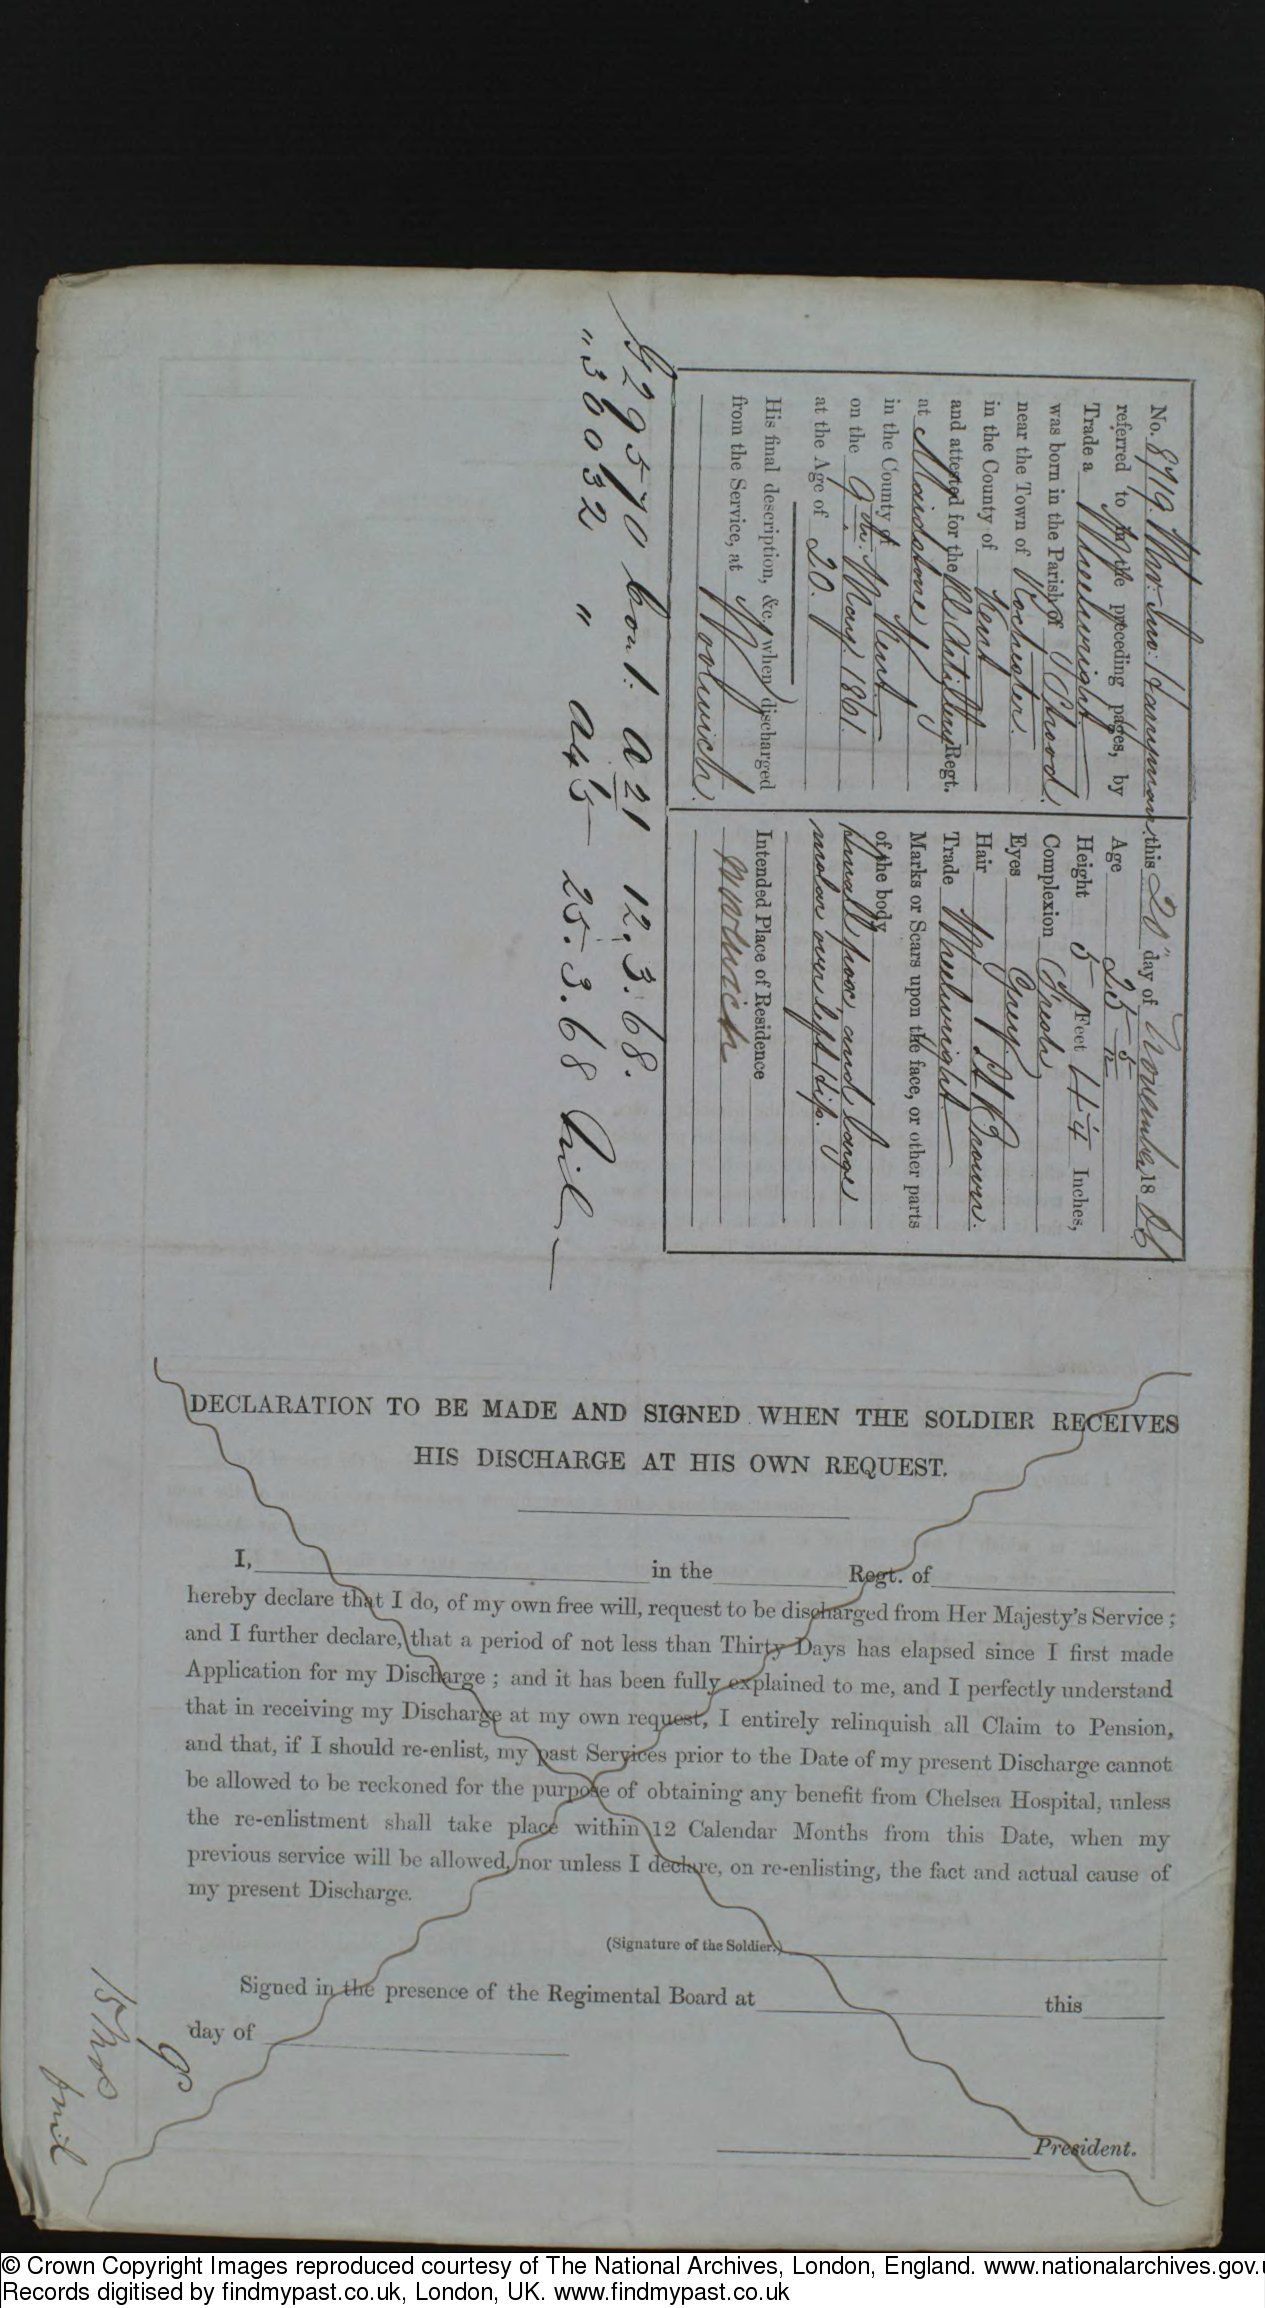 No. 8719. Whr. Jno: Harryman
referred to in the preceding pages, by
Trade a Wheelwright
was born in the Parish of Strood
near the Town of Rochester
in the County of Kent
and attested for the Rl. Artillery Regt.
at Maidstone
in the County of Kent
on the 9th. May 1861
at the Age of 20.
His final description, &c., when discharged
from the Service, at
Woolwich.
this 20" day of November 18 66
Age 25 5/12
Height 5 Feet 4 1/4 Inches,
Complexion Fresh
Eyes Grey
Hair Brown.
Trade Wheelwright
Marks or Scars upon the face, or other parts
of the body
Small pox, and large
molar over left Hip.
Intended Place of Residence
Woolwich
29570 A 21 12.3.68.
" 36032 " A45 25.3.68
DECLARATION TO BE MADE AND SIGNED WHEN THE SOLDIER RECEIVES
HIS DISCHARGE AT HIS OWN REQUEST.
I, in the Regt. of
hereby declare that I do, of my own free will, request to be discharged from Her Majesty's Service ;
and I further declare, that a period of not less than Thirty Days has elapsed since I first made
Application for my Discharge ; and it has been fully explained to me, and I perfectly understand
that in receiving my Discharge at my own request, I entirely relinquish all Claim to Pension,
and that, if I should re-enlist, my past Services prior to the Date of my present Discharge cannot
be allowed to be reckoned for the purpose of obtaining any benefit from Chelsea Hospital, unless
the re-enlistment shall take place within 12 Calendar Months from this Date, when my
previous service will be allowed, nor unless I declare, on re-enlisting, the fact and actual cause of
my present Discharge.
(Signature of the Soldier.)
Signed in the presence of the Regimental Board at this
day of
President.
© Crown Copyright Images reproduced courtesy of The National Archives, London, England. www.nationalarchives.gov.u
Records digitised by findmypast.co.uk, London, UK. www.findmypast.co.uk